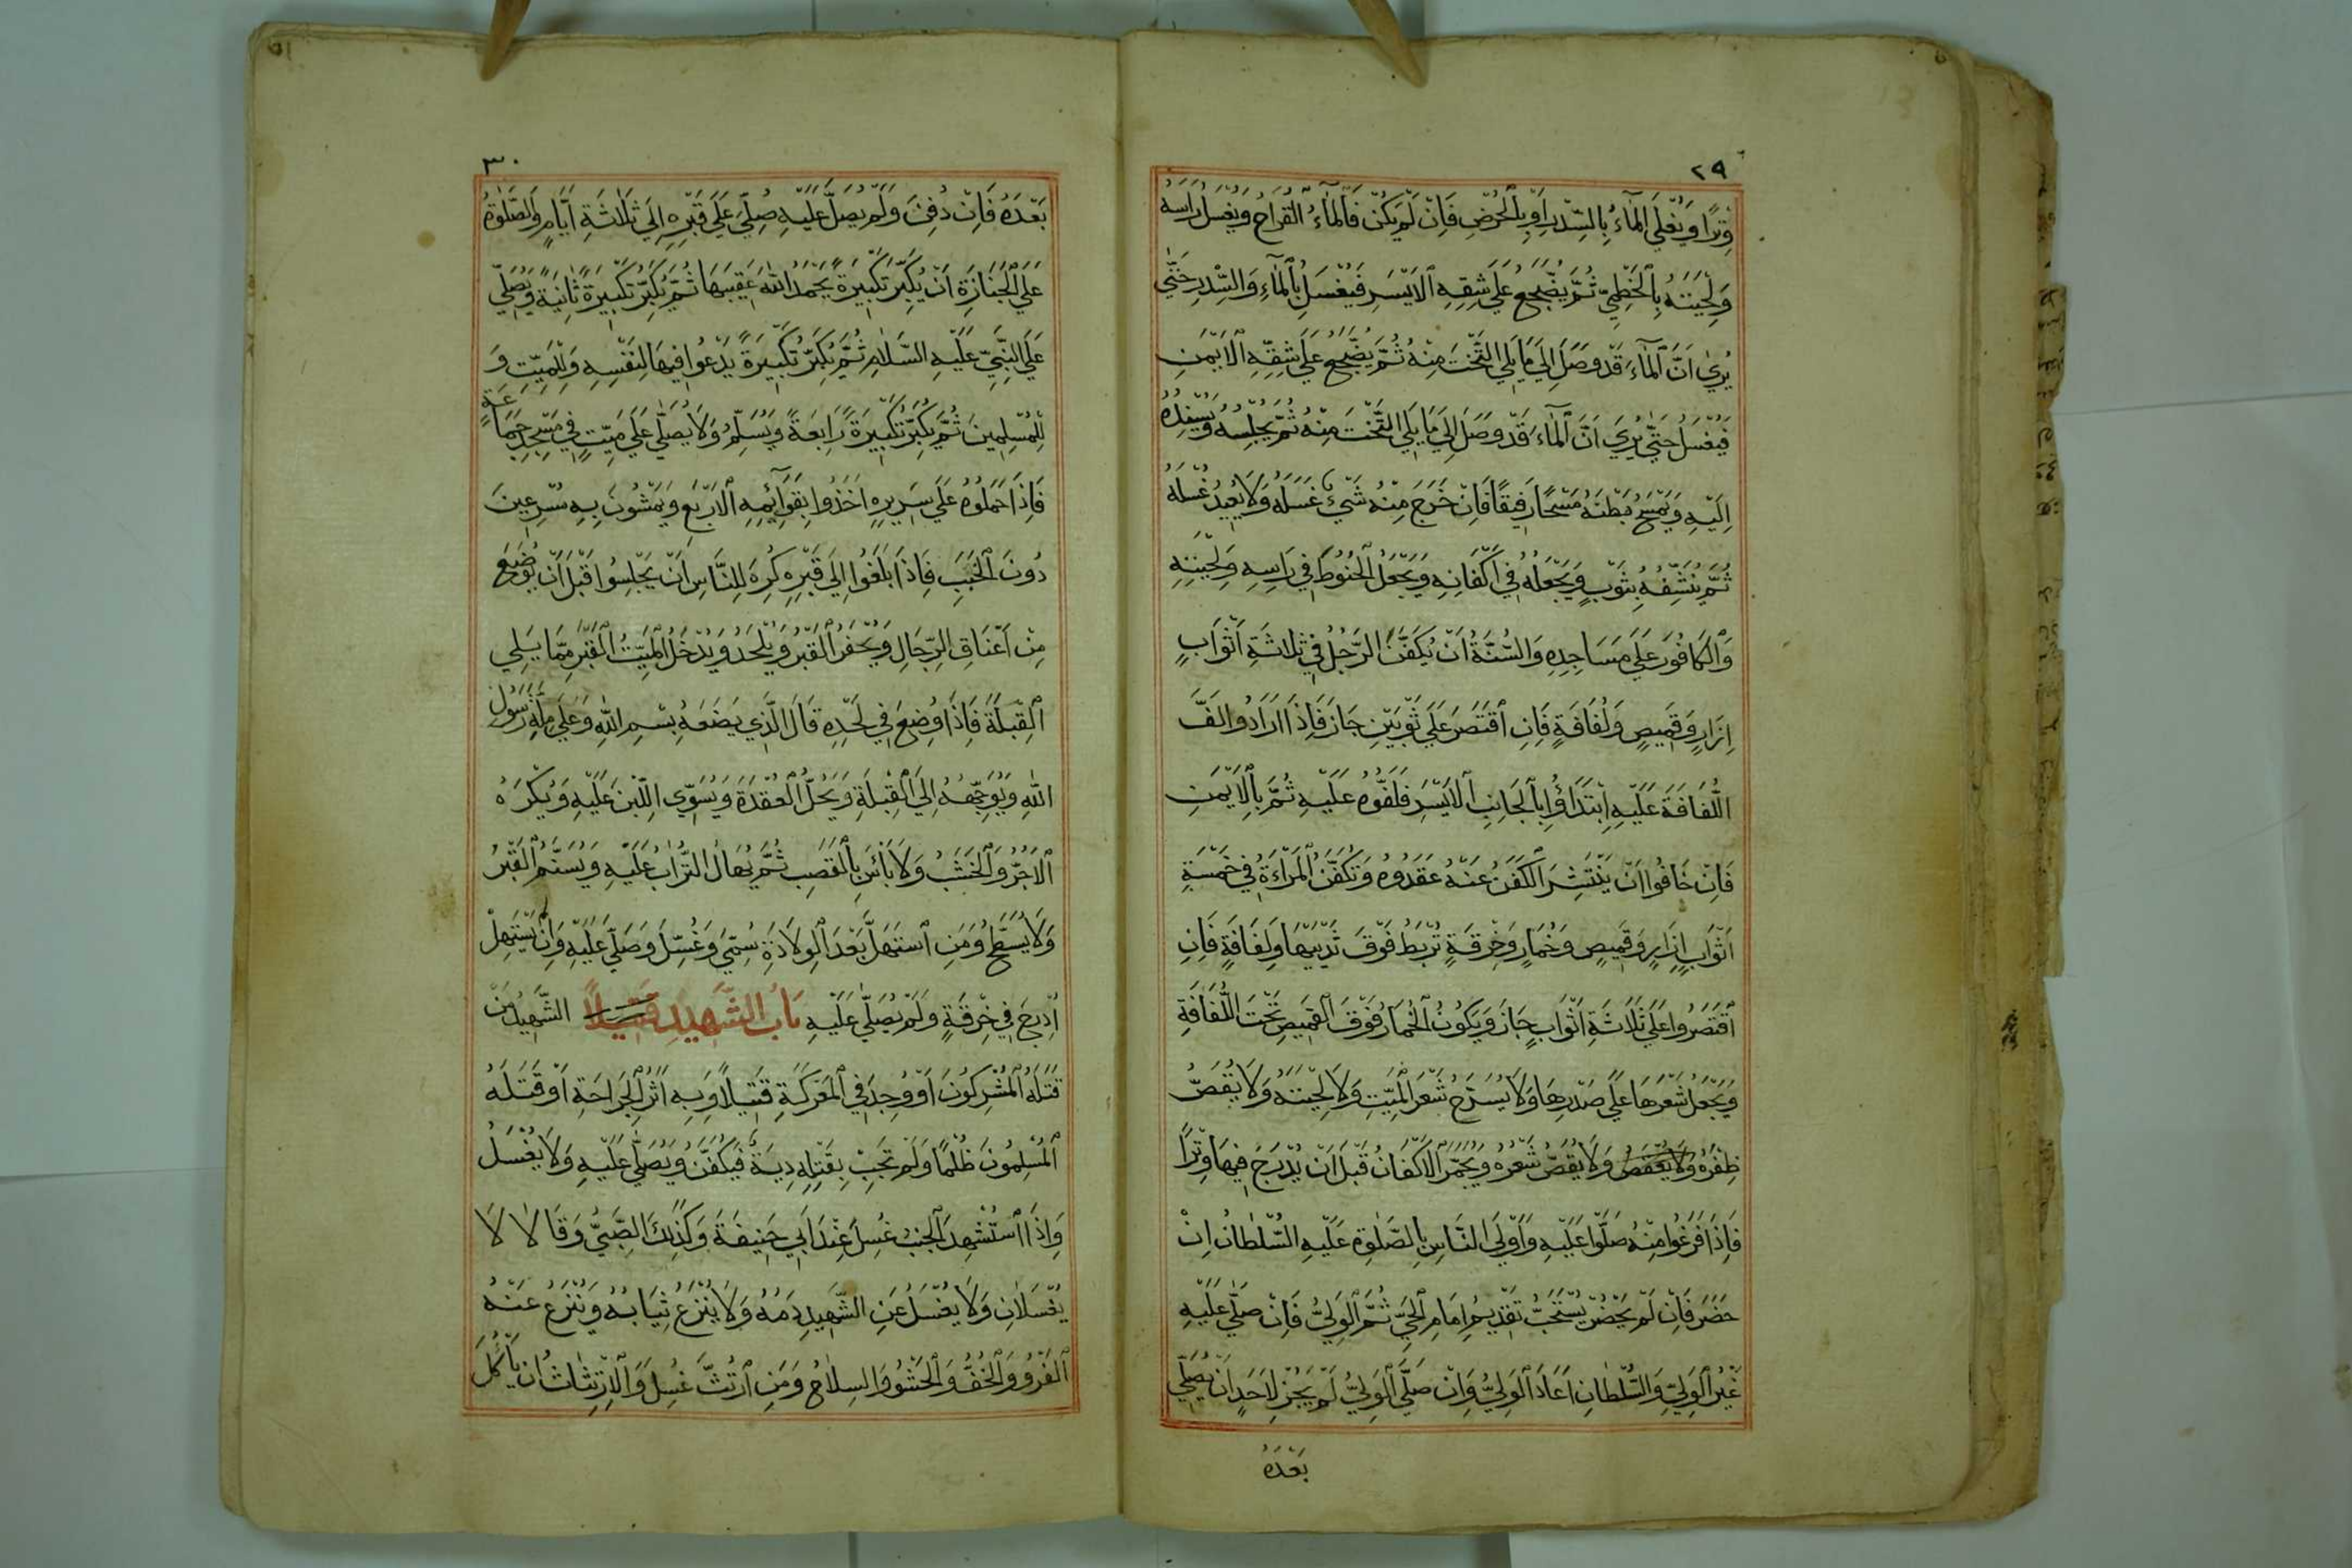 ٢٩
وِتْرًا وَيُغْلَى الْمَآءُ بِالسِّدْرِ اَوْ بِالْحُرْضِ فَاِنْ لَمْ يَكُنْ فَالْمَآءُ الْقَرَاحُ وَيُغْسَلُ رَاسُهُ
وَلِحْيَتُهُ بِالْخَطْمِيِّ ثُمَّ يُضْجَعُ عَلَى شِقِّهِ الْاَيْسَرِ فَيُغْسَلُ بِالْمَآءِ وَالسِّدْرِ حَتَّى
يُرَىٰ اَنَّ الْمَآءَ قَدْ وَصَلَ اِلَى مَا يَلِي التَّخْتَ مِنْهُ ثُمَّ يُضْجَعُ عَلَى شِقِّهِ الْاَيْمَنِ
فَيُغْسَلُ حَتَّى يُرَى اَنَّ الْمَآءَ قَدْ وَصَلَ اِلَى مَا يَلِي التَّخْتَ مِنْهُ ثُمَّ يُجْلِسُهُ وَيُسْنِدُهُ
اِلَيْهِ وَيَمْسَحُ بَطْنَهُ مَسْحًا رَفِيقًا فَاِنْ خَرَجَ مِنْهُ شَيْئٌ غَسَلَهُ وَلَا يُعِيدُ غُسْلَهُ
ثُمَّ يُنَشِّفُهُ بِثَوْبٍ وَيَجْعَلُهُ فِي اَكْفَانِهِ وَيَجْعَلُ الْحَنُوطَ فِي رَاسِهِ وَلِحْيَتِهِ
وَالْكَافُورَ عَلَى مَسَاجِدِهِ وَالسُّنَّةُ اَنْ يُكَفَّنَ الرَّجُلُ فِي ثَلَاثَةِ اَثْوَابٍ
اِزَارٍ وَقَمِيصٍ وَلُفَافَةٍ فَاِنِ اقْتَصَرَ عَلَى ثَوْبَيْنِ جَازَ فَاِذَا اَرَادُوا لَفَّ
اللُّفَافَةَ عَلَيْهِ اِبْتَدَاؤُا بِالْجَانِبِ الْاَيْسَرِ فَلَفُّوهُ عَلَيْهِ ثُمَّ بِالْاَيْمَنِ
فَاِنْ خَافُوا اَنْ يَنْتَشِرَ الْكَفَنُ عَنْهُ عَقَدُوهُ وَتُكَفَّنُ الْمَرْاَةُ فِي خَمْسَةِ
اَثْوَابٍ اِزَارٍ وَقَمِيصٍ وَخُمَارٍ وَخِرْقَةٍ تُرْبَطُ فَوْقَ ثَدْيَيْهَا وَلِفَافَةٍ فَاِنِ
اقْتَصَرُوا عَلَى ثَلَاثَةِ اَثْوَابٍ جَازَ وَيَكُونُ الْخُمَارُ فَوْقَ الْقَمِيصِ تَحْتَ اللُّفَافَةِ
وَيُجْعَلُ شَعْرُهَا عَلَى صَدْرِهَا وَلَا يُسَرَّحُ شَعْرُ الْمَيِّتِ وَلَا لِحْيَتُهُ وَلَا يُقَصُّ
ظِفْرُهُ وَلَا يُعْقَصُ وَلَا يُقَصُّ شَعْرُهُ وَيُجَمَّرُ الْاَكْفَانُ قَبْلَ اَنْ يُدْرَجَ فِيهَا وِتْرًا
فَاِذَا فَرَغُوا مِنْهُ صَلَّوْا عَلَيْهِ وَاَوْلَى النَّاسِ بِالصَّلٰوةِ عَلَيْهِ السُّلْطَانُ اِنْ
حَضَرَ فَاِنْ لَمْ يَحْضُرْ يُسْتَحَبُّ تَقْدِيمُ اِمَامِ الْحَيِّ ثُمَّ الْوَلِيُّ فَاِنْ صَلَّى عَلَيْهِ
غَيْرُ الْوَلِيِّ وَالسُّلْطَانِ اَعَادَ الْوَلِيُّ وَاِنْ صَلَّى الْوَلِيُّ لَمْ يَجُزْ لِاَحَدٍ اَنْ يُصَلِّيَ
بَعْدَهُ
٣٠
بَعْدَهُ فَاِنْ دُفِنَ وَلَمْ يُصَلَّ عَلَيْهِ صُلِّيَ عَلَى قَبْرِهِ اِلَى ثَلَاثَةِ اَيَّامٍ وَالصَّلٰوةُ
عَلَى الْجَنَازَةِ اَنْ يُكَبِّرَ تَكْبِيرَةً يَحْمَدُ اللّٰهَ عَقِيبَهَا ثُمَّ يُكَبِّرُ تَكْبِيرَةً ثَانِيَةً وَيُصَلِّي
عَلَى النَّبِيِّ عَلَيْهِ السَّلَامُ ثُمَّ يُكَبِّرُ تَكْبِيرَةً يَدْعُوا فِيهَا لِنَفْسِهِ وَلِلْمَيِّتِ وَ
لِلْمُسْلِمِينَ ثُمَّ يُكَبِّرُ تَكْبِيرَةً رَابِعَةً وَيُسَلِّمُ وَلَا يُصَلَّى عَلَى مَيِّتٍ فِي مَسْجِدِ جَمَاعَةٍ
فَاِذَا حَمَلُوهُ عَلَى سَرِيرِهِ اَخَذُوا بِقَوَآئِمِهِ الْاَرْبَعِ وَيَمْشُونَ بِهِ مُسْرِعِينَ
دُونَ الْخَبَبِ فَاِذَا بَلَغُوا اِلَى قَبْرِهِ كُرِهَ لِلنَّاسِ اَنْ يَجْلِسُوا قَبْلَ اَنْ يُوضَعَ
مِنْ اَعْنَاقِ الرِّجَالِ وَيُحْفَرُ الْقَبْرُ وَيُلْحَدُ وَيُدْخَلُ الْمَيِّتُ الْقَبْرَ مِمَّا يَلِي
الْقِبْلَةَ فَاِذَا وُضِعَ فِي لَحْدِهِ قَالَ الَّذِي يَضَعُهُ بِسْمِ اللّٰهِ وَعَلَى مِلَّةِ رَسُولِ
اللّٰهِ وَيُوَجِّهُهُ اِلَى الْقِبْلَةِ وَيَحُلُّ الْعُقْدَةَ وَيُسَوِّي اللَّبِنَ عَلَيْهِ وَيُكْرَهُ
الْاَجُرُّ وَالْخَشَبُ وَلَا بَأْسَ بِالْقَصَبِ ثُمَّ يُهَالُ التُّرَابُ عَلَيْهِ وَيُسَنَّمُ الْقَبْرُ
وَلَا يُسَطَّحُ وَمَنِ اسْتَهَلَّ بَعْدَ الْوِلَادَةِ سُمِّيَ وَغُسِّلَ وَصَلَّى عَلَيْهِ وَاِنْ يَسْتَهِلَّ
اُدْرِجَ فِي خِرْقَةٍ وَلَمْ يُصَلَّى عَلَيْهِ بَابُ الشَّهِيدِ قَتِيلًا الشَّهِيدُ مَنْ
قَتَلَهُ الْمُشْرِكُونَ اَوْ وُجِدَ فِي الْمَعْرَكَةِ قَتِيلًا وَبِهِ اَثَرُ الْجَرَاحَةِ اَوْ قَتَلَهُ
الْمُسْلِمُونَ ظُلْمًا وَلَمْ تَجِبْ بِقَتْلِهِ دِيَةٌ فَيُكَفَّنُ وَيُصَلَّى عَلَيْهِ وَلَا يُغْسَلُ
وَاِذَا اسْتُشْهِدَ الْجُنُبُ غُسِلَ عِنْدَ اَبِي حَنِيفَةَ وَكَذٰلِكَ الصَّبِيُّ وَقَالَا لَا
يُغْسَلَانِ وَلَا يُغْسَلُ عَنِ الشَّهِيدِ دَمُهُ وَلَا يُنْزَعُ ثِيَابُهُ وَيُنْزَعُ عَنْهُ
الْفَرْوُ وَالْخُفُّ وَالْحَشْوُ وَالسِلَاحُ وَمَنِ ارْتُثَّ غُسِلَ وَالْاِرْتِثَاثُ اَنْ يَأْكُلَ